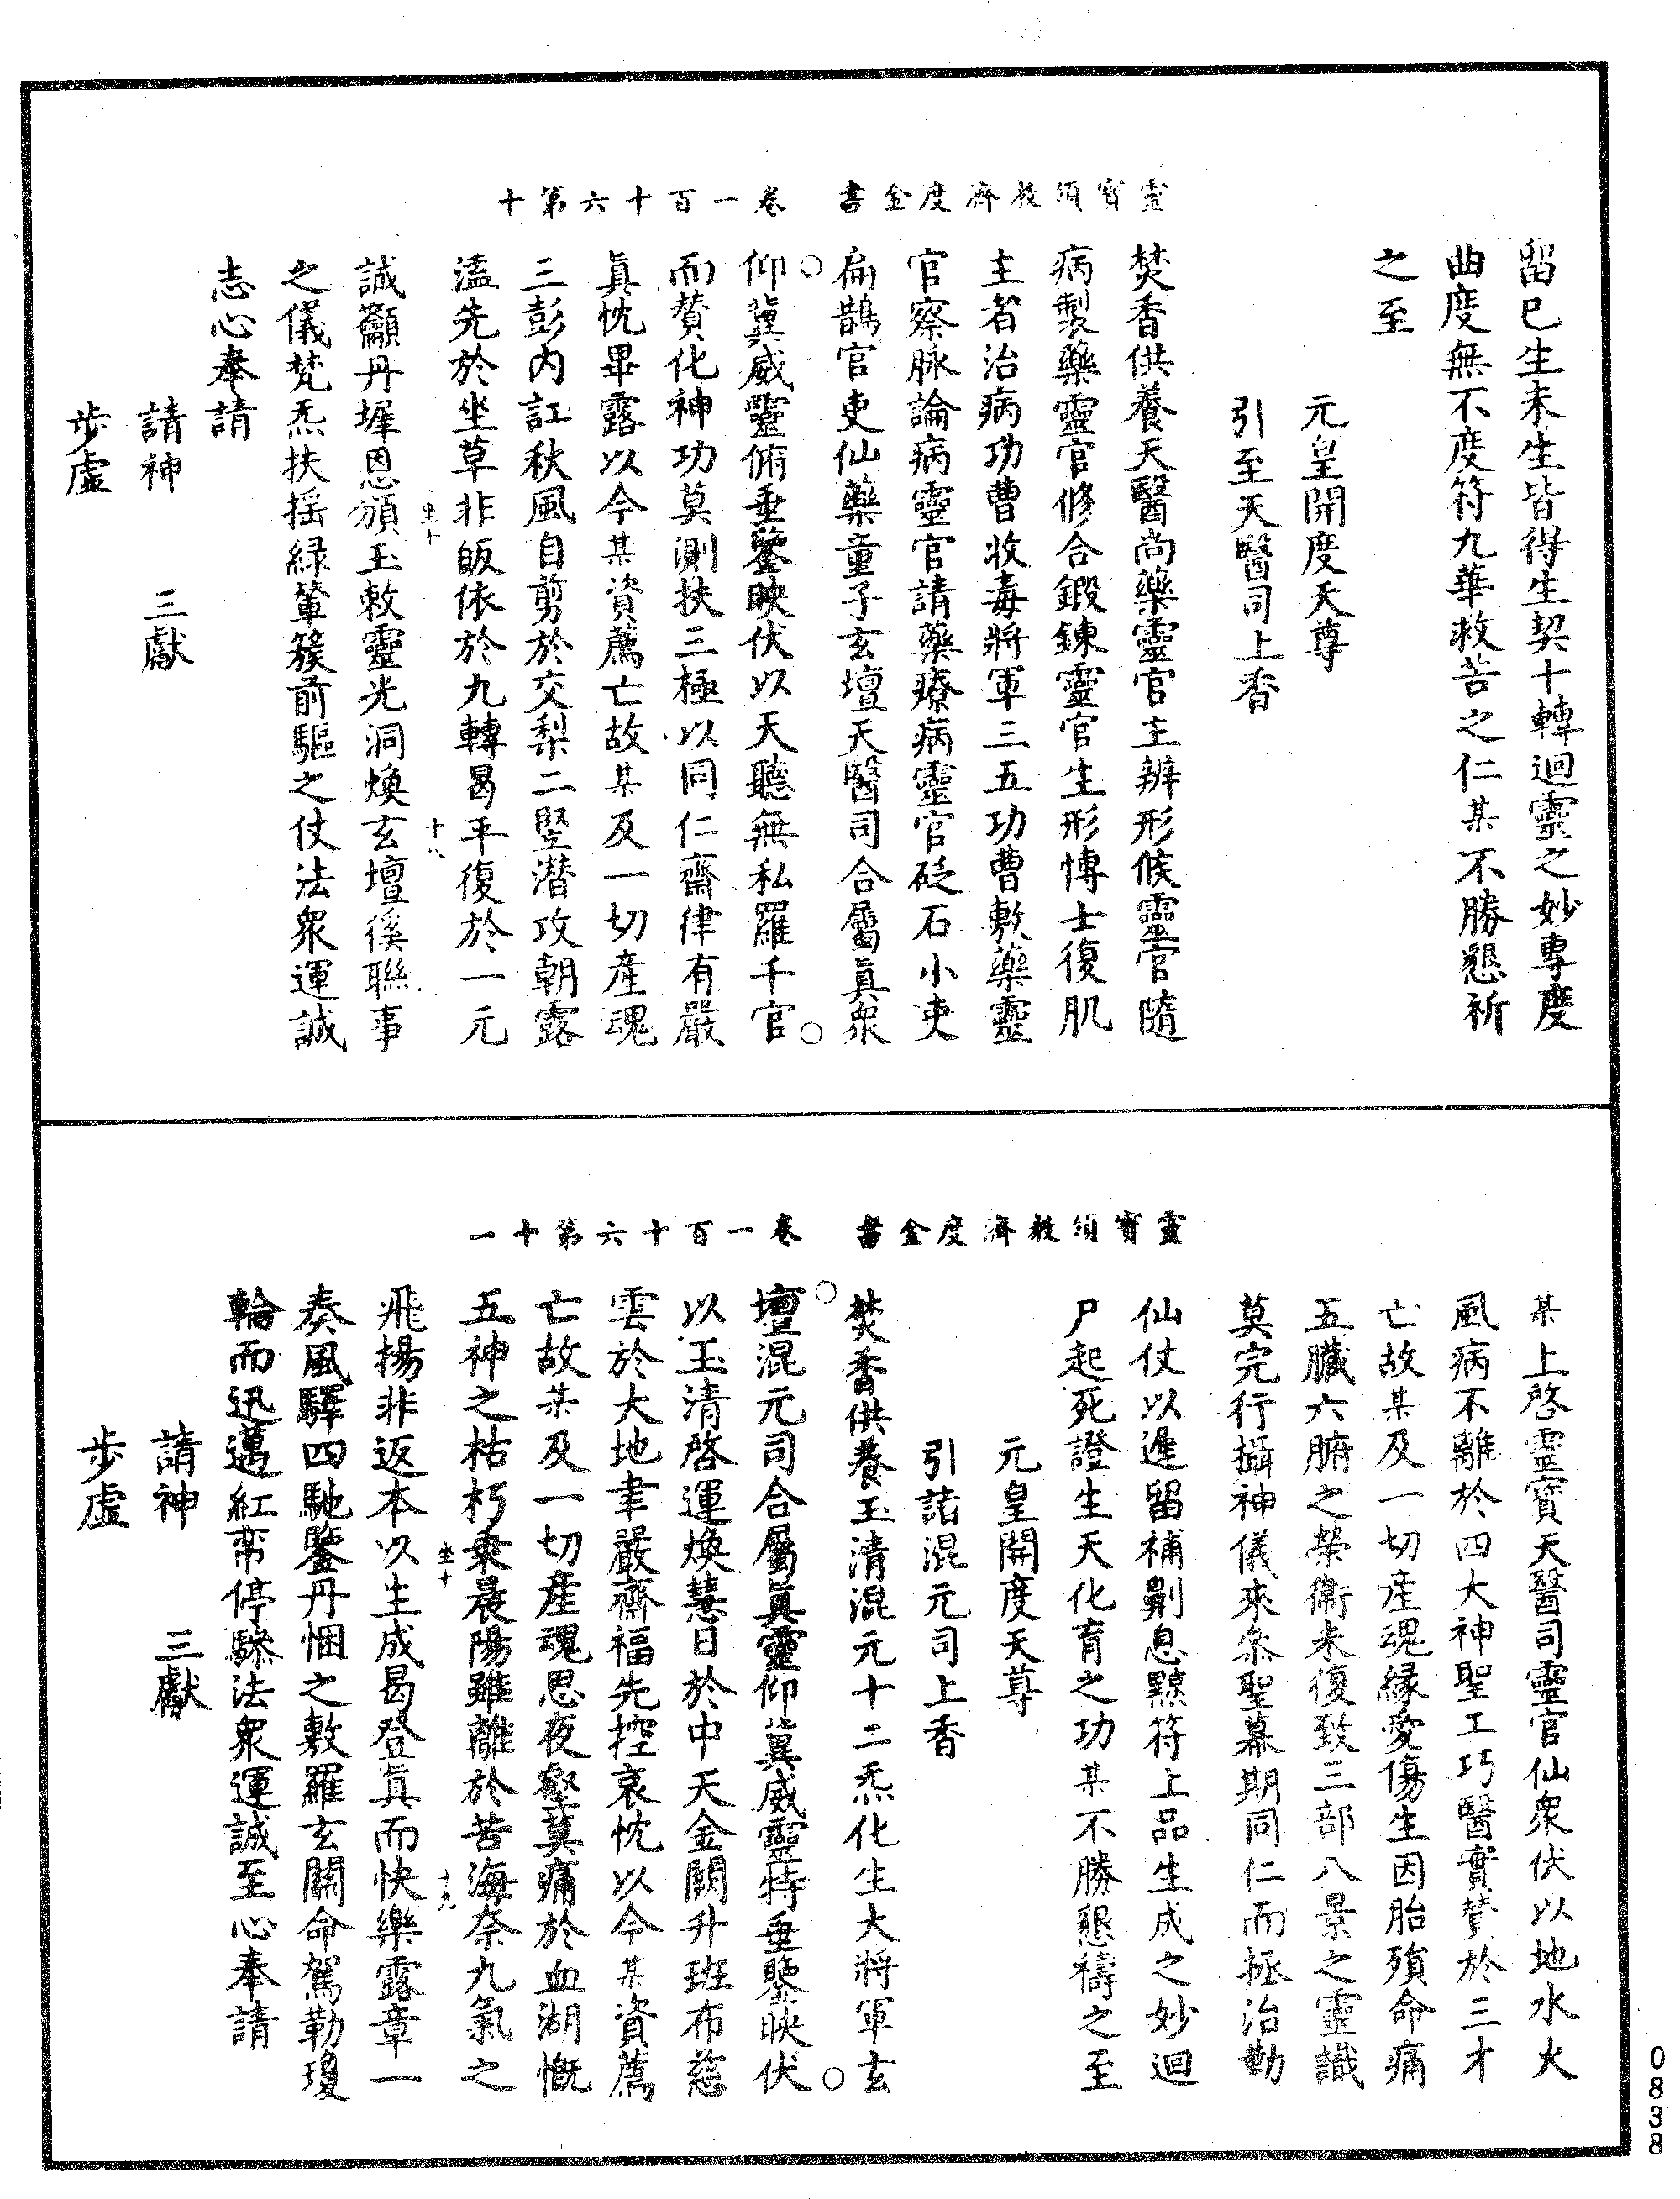 留已生未生皆得生契十轉迴靈之妙專度
曲度無不度符九華救苦之仁某不勝懇祈
之至
元皇開度天尊
引至天醫司上香
靈寶領教濟度金書　卷一百十六第十
焚香供養天醫尚藥靈官主辨形候靈官隨
病製藥靈官修合鍛鍊靈官生形博士復肌
主者治病功曹收毒將軍三五功曹敷藥靈
官察脉論病靈官請藥療病靈官砭石小吏
扁鵲官吏仙藥童子玄壇天醫司合屬眞衆
仰冀威靈俯垂鑒映伏以天聽無私羅千官
而贊化神功莫測扶三極以同仁齋律有嚴
眞忱畢露以今某資薦亡故某及一切產魂
三彭內訌秋風自剪於交梨二豎潜攻朝露
溘先於坐草非皈依於九轉曷平復於一元
坐十　十八
誠籲丹墀恩頒玉敕靈光洞煥玄壇徯聯事
之儀梵炁扶搖緑輦簇前驅之仗法衆運誠
志心奉請
請神　三獻
步虛
某上啓靈寶天醫司靈官仙衆伏以地水火
風病不離於四大神聖工巧醫實贊於三才
亡故某及一切產魂緣愛傷生因胎殞命痛
五臟六腑之榮衛未復致三部八景之靈識
莫完行攝神儀來叅聖幕期同仁而拯治勛
仙仗以遲留補劓息黥符上品生成之妙迴
尸起死證生天化育之功某不勝懇禱之至
元皇開度天尊
引詣混元司上香
靈寶領教濟度金書　卷一百十六第十一
焚香供養玉清混元十二炁化生大將軍玄
壇混元司合屬眞靈仰冀威靈特垂鑒映伏
以玉清啓運煥慧日於中天金闕升班布慈
雲於大地聿嚴齋福先控哀忱以今某資薦
亡故某及一切產魂思夜壑莫痛於血湖慨
五神之枯朽乗晨陽雖離於苦海奈九氣之
坐十　十九
飛揚非返本以生成曷登眞而快樂露章一
奏風驛四馳鑒丹悃之敷羅玄關命駕勒瓊
輪而迅邁紅帟停驂法衆運誠至心奉請
請神　三獻
步虛
0838